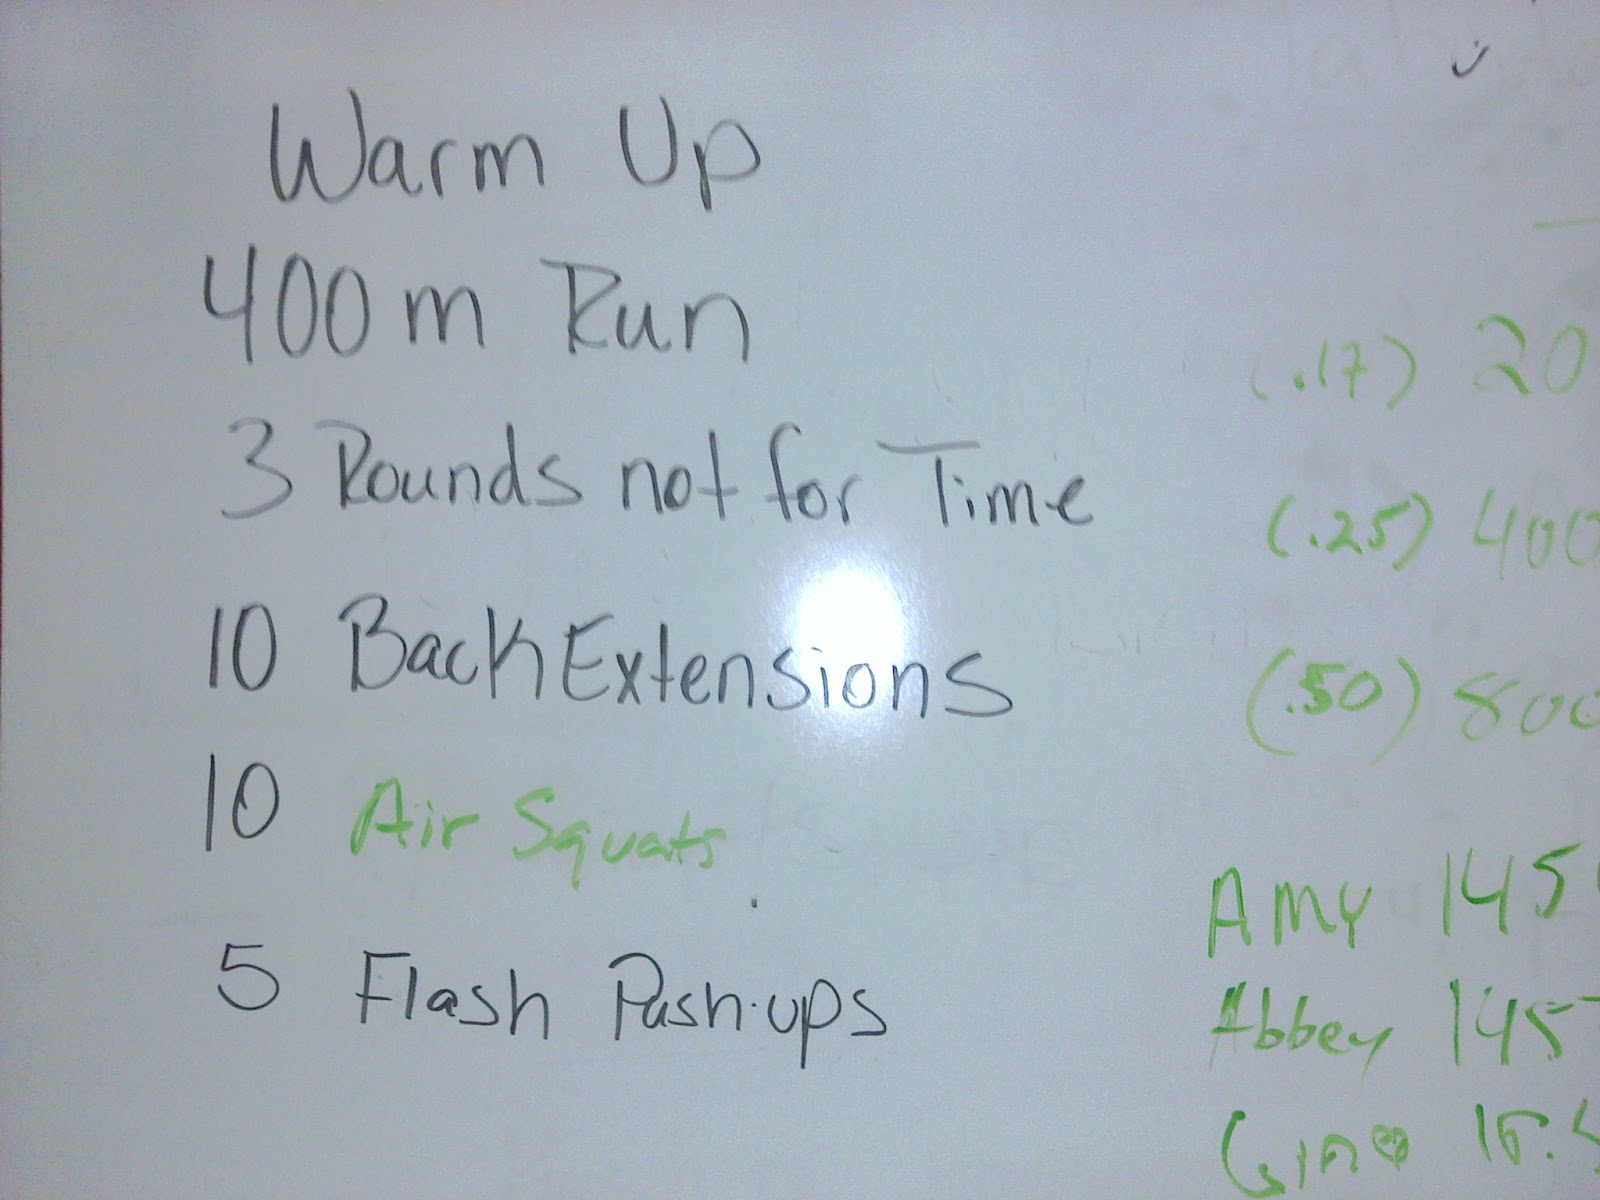 Warm Up
400 m Run
3 Rounds not for Time
10 Back Extensions
10 Air Squats
5 Flash Push-ups
(.17) 20
(.25) 400
(.50) 800
Amy 145
Abbey 145
Gina